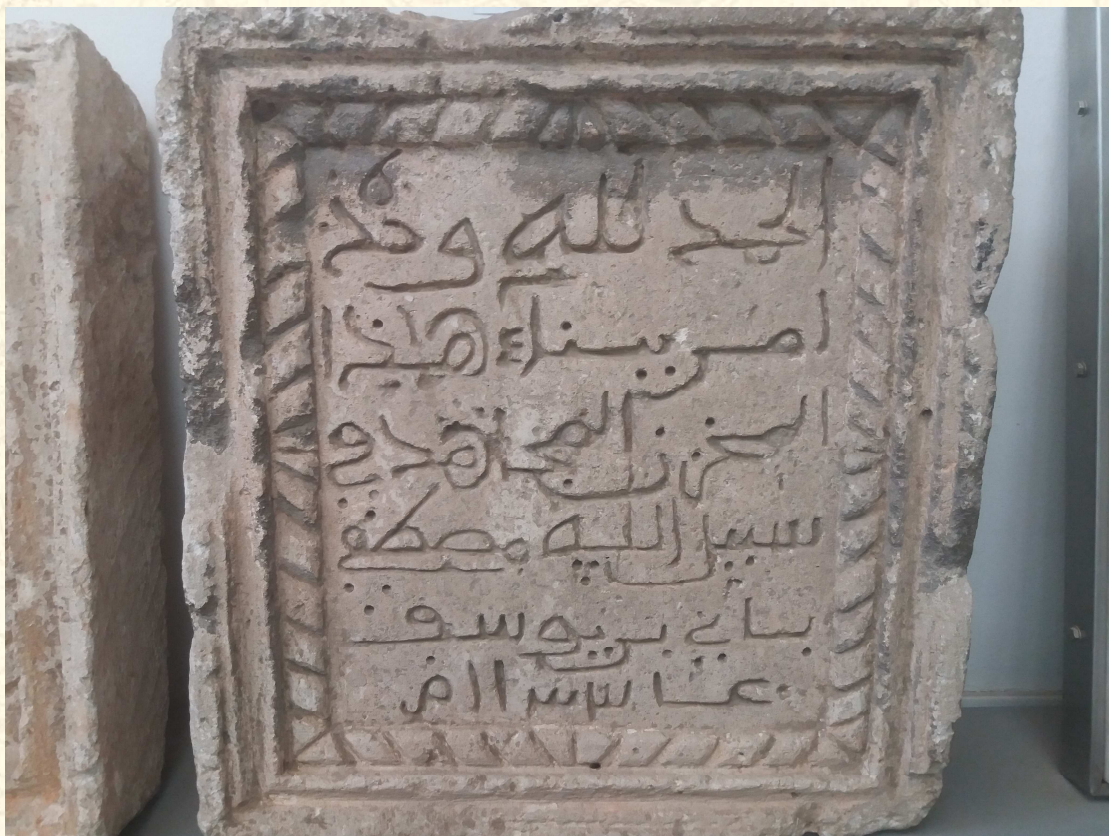 الحمد لله وحده
امر ببناء هذا
المخزن المجاهد في
سبيل الله مصطفى
باي بن يوسف
عام